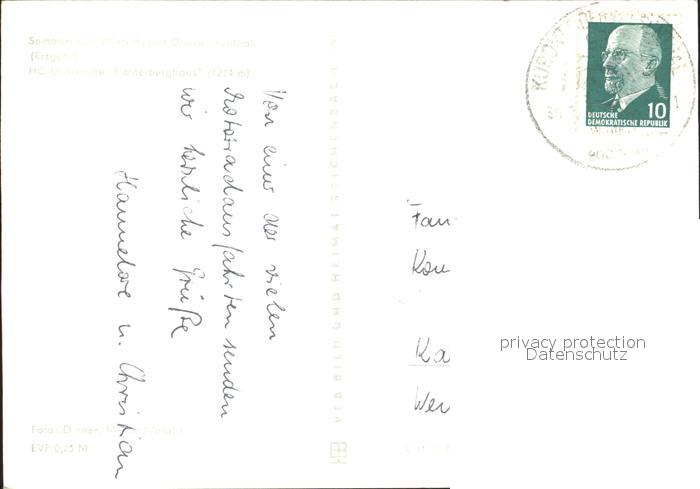 Sommer- und Winter-Kurort Oberwiesenthal
(Erzgeb.)
HO-Gaststätte "Fichtelberghaus" (1214 m)
Von einer der vielen
Motorradausfahrten senden
wir herzliche Grüße
Hannelore u. Christian
Foto: Dinner,
EVP 0,25 M
VEB BILD UND HEIMAT REICHENBACH
10
DEUTSCHE
DEMOKRATISCHE REPUBLIK
Fam
Kon
Ka
Wer
privacy protection
Datenschutz